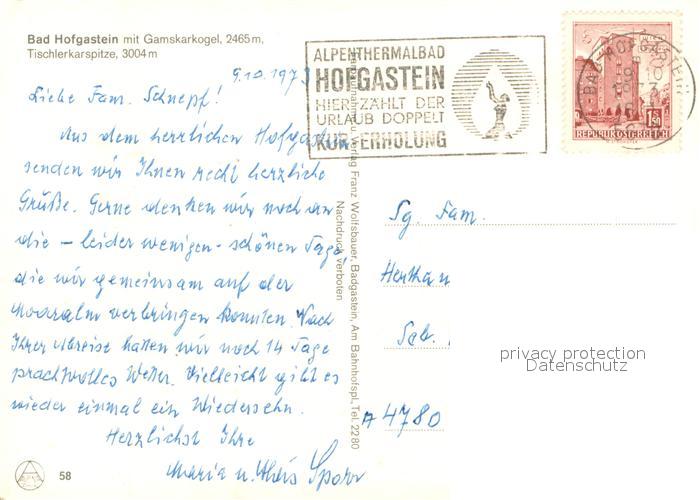 Bad Hofgastein mit Gamskarkogel, 2465 m,
Tischlerkarspitze, 3004 m
9.10.1973
Liebe Fam. Schnepf!
Aus dem herrlichen Hofgastein
senden wir Ihnen recht herzliche
Grüße. Gerne denken wir noch an
die – leider wenigen – schönen Tage,
die wir gemeinsam auf der
Mooralm verbringen konnten. Nach
Ihrer Abreise hatten wir noch 14 Tage
prachtvolles Wetter. Vielleicht gibt es
wieder einmal ein Wiedersehn.
Herzlichst Ihre
Maria u. Sporr
58
ALPENTHERMALBAD
HOFGASTEIN
HIER ZÄHLT DER
URLAUB DOPPELT
KUR-ERHOLUNG
BAD HOFGASTEIN
REPUBLIK ÖSTERREICH
1.50
Verlag Franz Wolfsbauer, Badgastein, Am Bahnhofspl., Tel. 2280
Nachdruck verboten
Sg. Fam.
Seb.
A 4780
privacy protection
Datenschutz